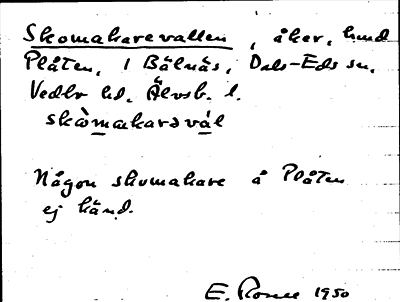 Skomakarevallen, åker, hmd
Plåten, 1 Bälnäs, Dals-Eds sn,
Vedbo hd. Älvsb. l.
skòmakarəvál
Någon skomakare å Plåten
ej känd.
E. 1950